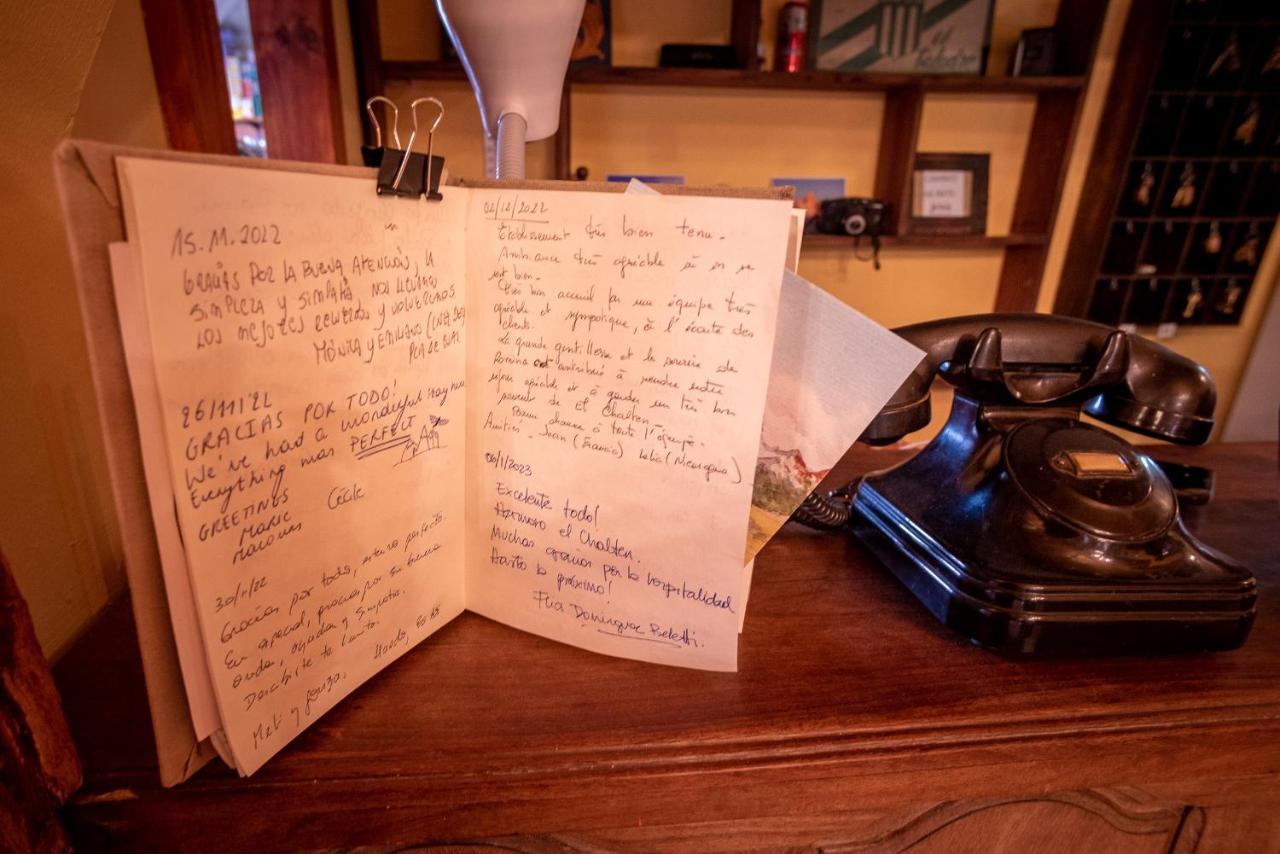 15.11.2022
GRACIAS POR LA BUENA ATENCIÓN, LA
SIMPLEZA Y SIMPATÍA, NOS LLEVAMOS
LOS MEJORES RECUERDOS Y VOLVEREMOS
MÓNICA Y EMILIANO
26/11/22
GRACIAS POR TODO!
We've had a wonderful stay here
Everything was PERFECT
GREETINGS
MARIE Cécile
30/11/22
Gracias por todo, estuvo perfecto.
En especial, gracias por su buena
onda, ayuda y simpatía.
Meli y
02/12/2022
Etablissement très bien tenu.
Ambiance très agréable où on se
sent bien.
Très bon accueil par une équipe très
agréable et sympatique, à l'écoute des
clients.
La grande gentillesse et le sourire de
Romina ont contribué à rendre notre
séjour agréable et à garder un très bon
souvenir de el Chalten.
Bonne chance à toute l'équipe.
Amitiés. Jean (Francia) (Nicaragua)
06/1/2023
Excelente todo!
Hermoso el Chalten.
Muchas gracias por la hospitalidad
Hasta la próxima!
Flia Dominguez
el